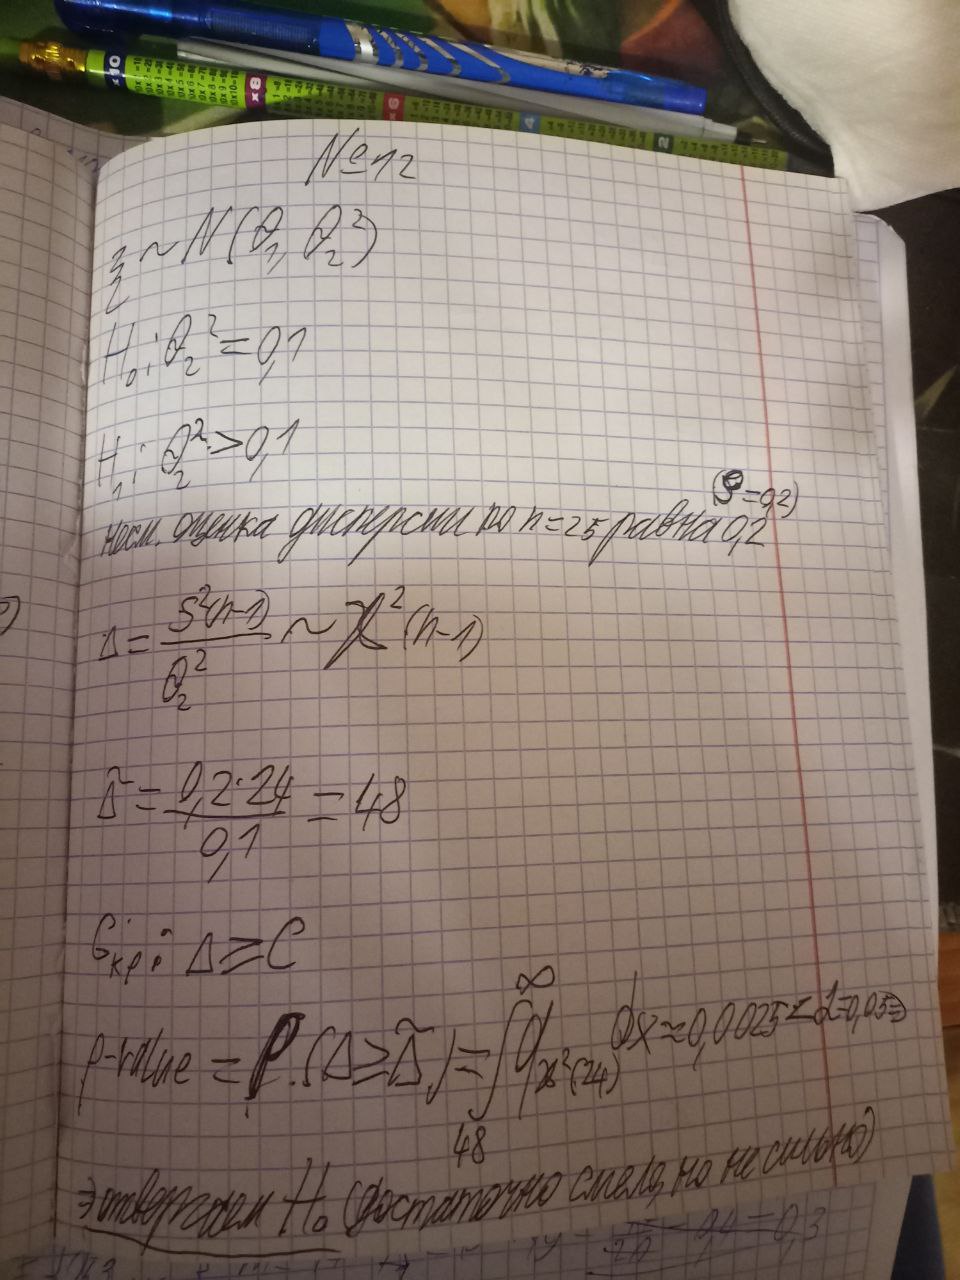 ×10 ×8 ×6 4 2
№12
ξ ~ N(θ₁, θ₂²)
H₀: θ₂² = 0,1
H₁: θ₂² > 0,1
(S² = 0,2)
несм. оценка дисперсии по n = 25 равна 0,2
Δ = S²(n-1) / θ₂² ~ χ²(n-1)
Δ̃ = 0,2·24 / 0,1 = 48
Gкр: Δ ≥ C
p-value = P(Δ ≥ Δ̃) = ∫₄₈^∞ q χ²(24) dx ≈ 0,0025 < α = 0,05 ⇒
⇒ отвергаем H₀ (достаточно смело, но не сильно)